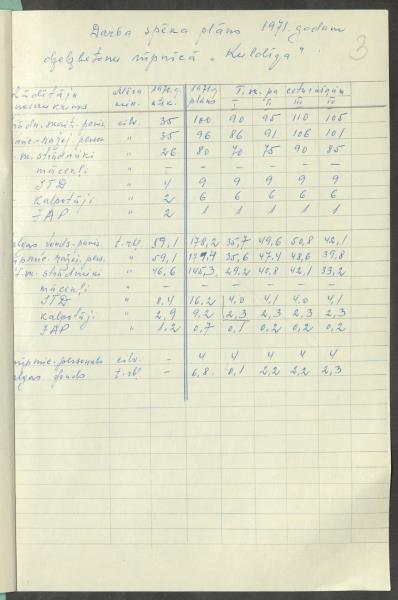 Darba spēka plāns 1971. gadam
dzelzbetona rūpnīcā „Kuldīga"
3
Rādītāju Mēra 1970.g. 1971.g. T. sk. pa ceturkšņiem
nosaukums vien. plāns I II III IV
cilv. 35 100 90 95 110 105
" 35 96 86 91 106 101
t.sk. strādnieki " 26 80 70 75 90 85
mācekļi " – – – – – –
ITD " 4 9 9 9 9 9
kalpotāji " 2 6 6 6 6 6
JAP " 2 1 1 1 1 1
algas fonds t.rbļ. 59,1 178,2 35,7 49,6 50,8 42,1
" 59,1 35,6 47,4 48,6 39,8
t.sk. strādnieki " 46,6 145,3 29,2 40,8 42,1 33,2
mācekļi " – – – – – –
ITD " 8,4 16,2 4,0 4,1 4,0 4,1
kalpotāji " 2,9 9,2 2,3 2,3 2,3 2,3
JAP " 1,2 0,7 0,1 0,2 0,2 0,2
personāls cilv. – 4 4 4 4 4
algas fonds t.rbļ. – 6,8 0,1 2,2 2,2 2,3